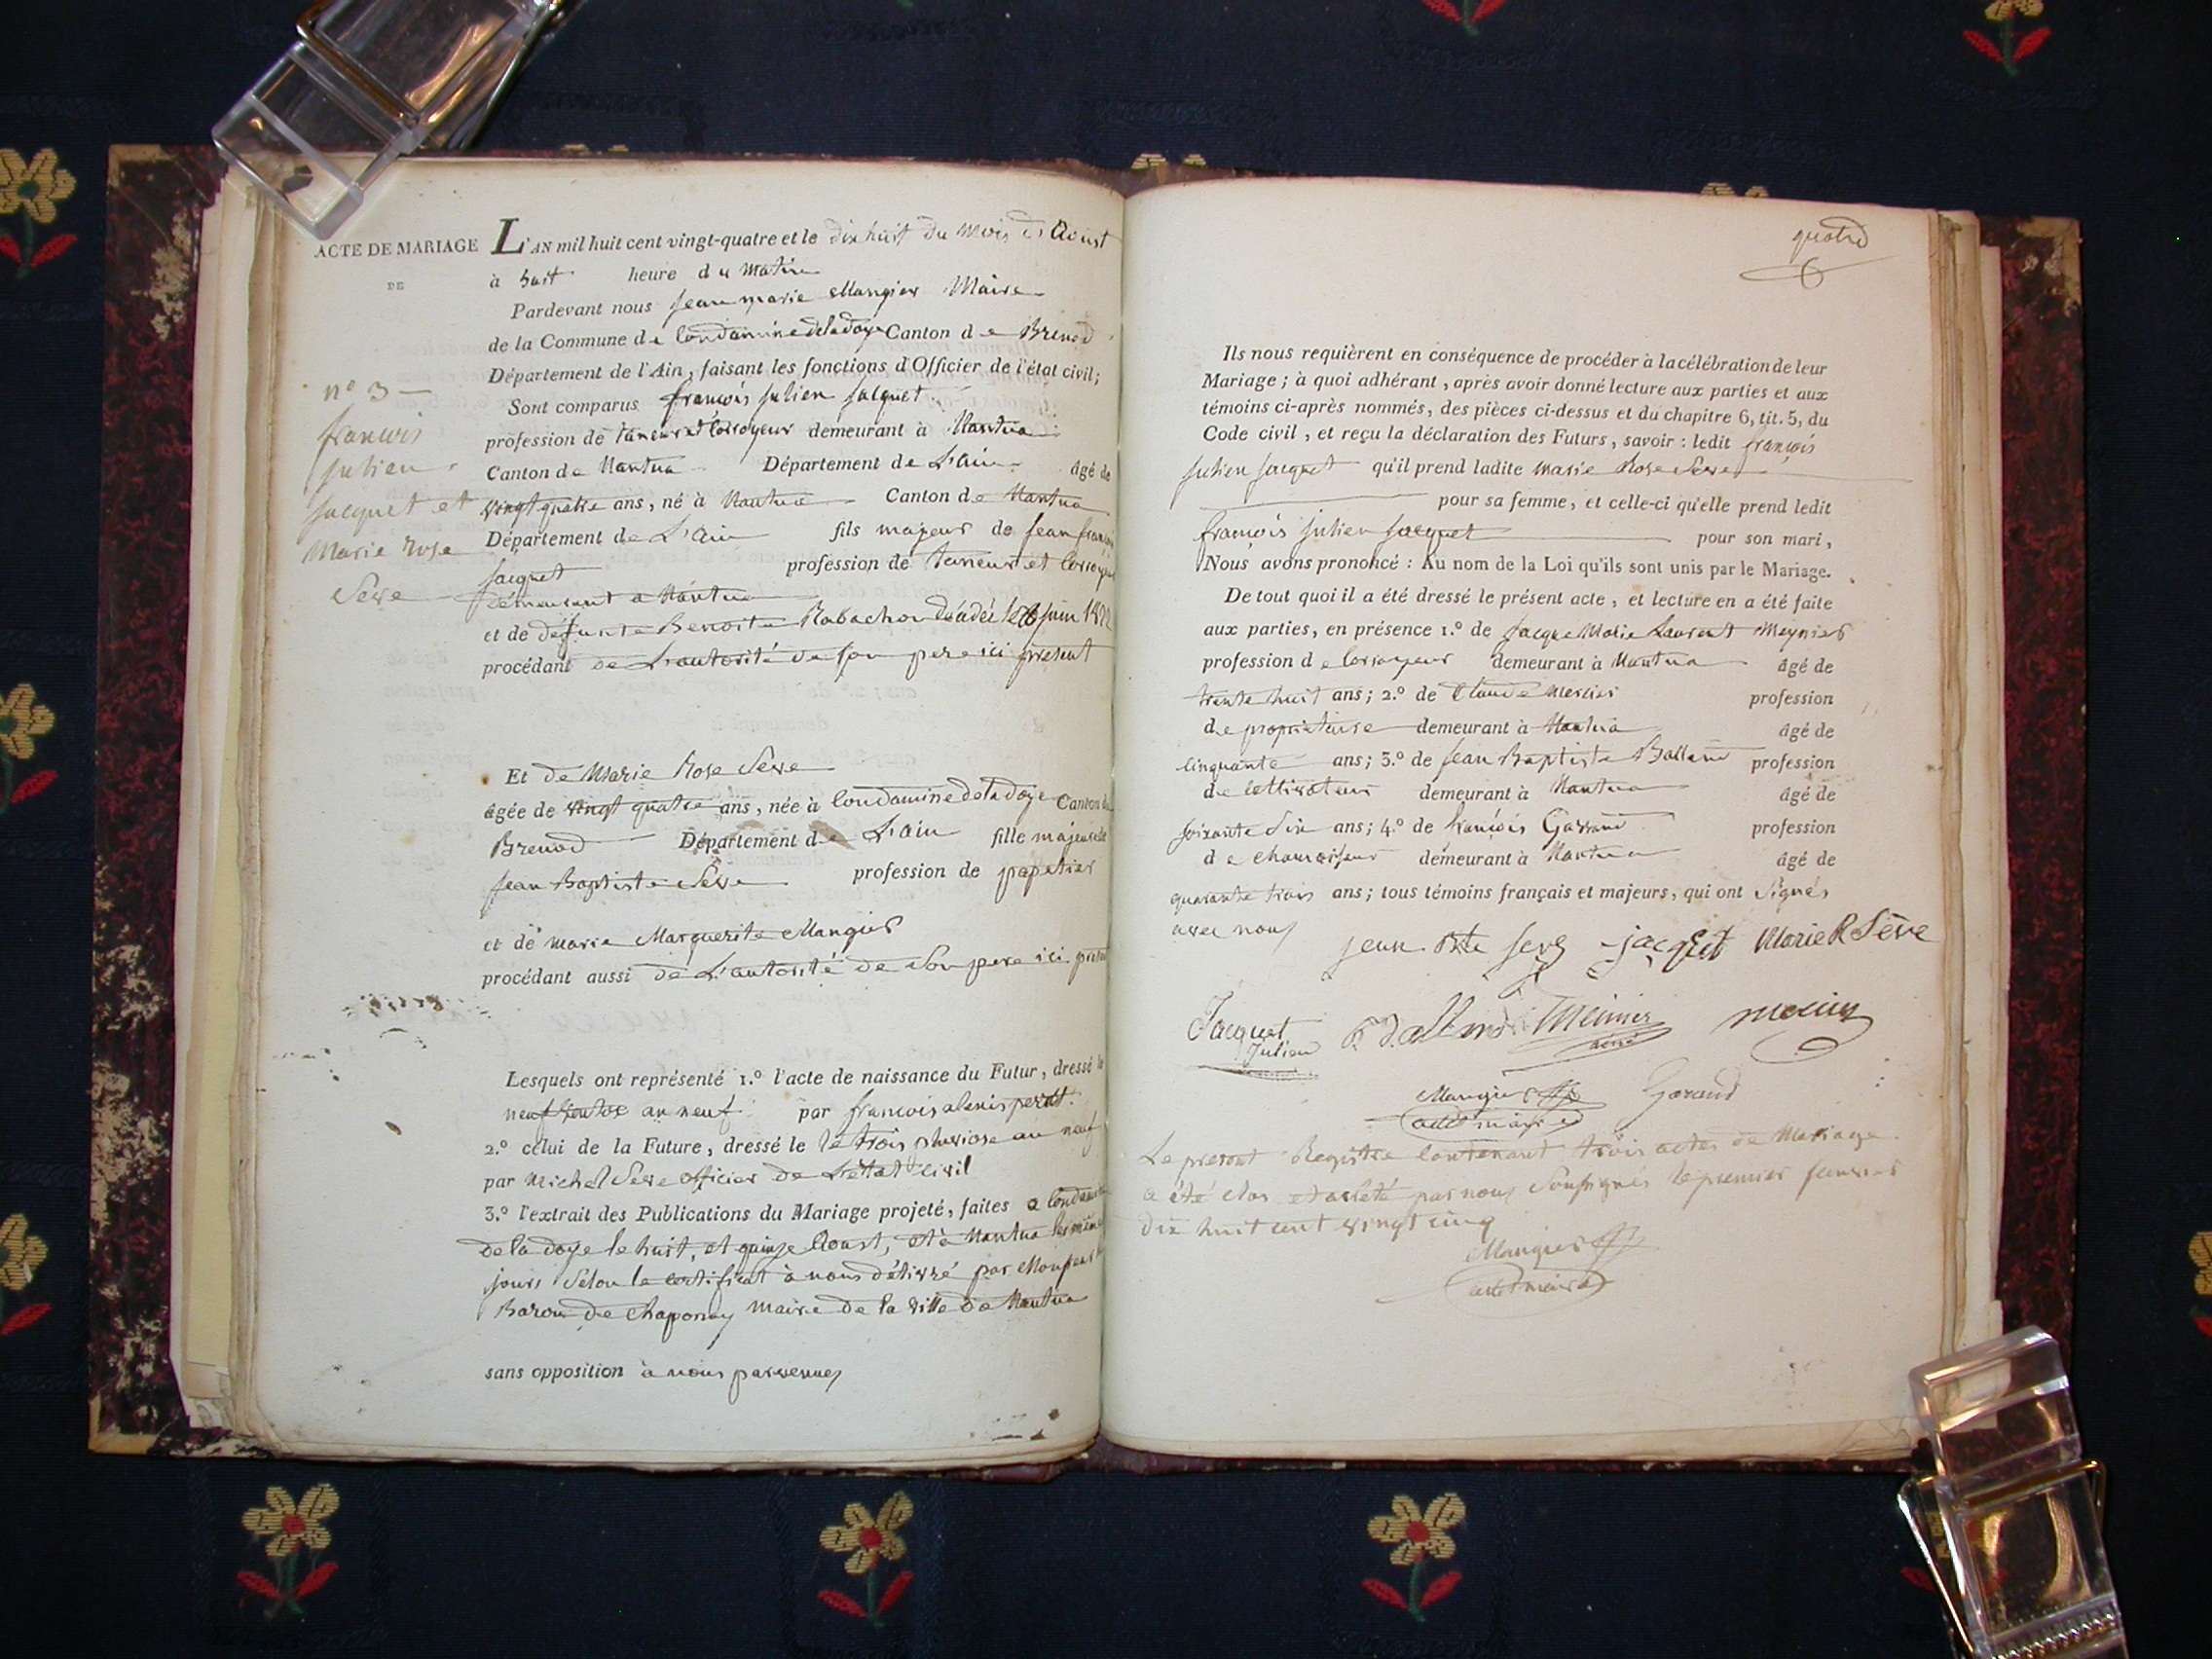 ACTE DE MARIAGE
DE
n° 3
françois
julien
jacquet et
Marie Rose
Seve
L'AN mil huit cent vingt-quatre et le dix huit du mois d'Aoust
à huit heure du matin
Pardevant nous jean marie Mangier Maire
de la Commune de Condamine de la doye Canton de Brenod
Département de l'Ain, faisant les fonctions d'Officier de l'état civil;
Sont comparus françois julien jacquet
profession de taneur et corroyeur demeurant à Nantua
Canton de Nantua Département de L'ain âgé de
vingt quatre ans, né à Nantua Canton de Nantua
Département de L'ain fils majeur de jean françois
jacquet profession de taneur et corroyeur
demeurant a Nantua
et de defunte Benoite Rabachon décédée le juin 1822
procédant de L'autorité de son pere ici présent
Et de Marie Rose Seve
âgée de vingt quatre ans, née à Condamine de la doye Canton de
Brenod Département de L'ain fille majeure de
jean Baptiste Seve profession de papetier
et de marie Marguerite Mangier
procédant aussi de L'autorité de son pere ici présent
Lesquels ont représenté 1.° l'acte de naissance du Futur, dressé le
neuf an neuf par françois alexis
2.° celui de la Future, dressé le le trois pluviose an neuf
par Michel Seve officier de L'état civil
3.° l'extrait des Publications du Mariage projeté, faites a Condamine
de la doye le huit, et quinze Aoust, et à Nantua les mêmes
jours selon le certificat à nous délivré par Monsieur le
Baron de Chaponay maire de la ville de Nantua
sans opposition à nous parvenues
quatre
Ils nous requièrent en conséquence de procéder à la célébration de leur
Mariage; à quoi adhérant, après avoir donné lecture aux parties et aux
témoins ci-après nommés, des pièces ci-dessus et du chapitre 6, tit. 5, du
Code civil, et reçu la déclaration des Futurs, savoir : ledit françois
julien jacquet qu'il prend ladite marie Rose Seve
pour sa femme, et celle-ci qu'elle prend ledit
françois julien jacquet pour son mari,
Nous avons prononcé : Au nom de la Loi qu'ils sont unis par le Mariage.
De tout quoi il a été dressé le présent acte, et lecture en a été faite
aux parties, en présence 1.° de jacque Marie Laurent Meynier
profession de corroyeur demeurant à Nantua âgé de
trente huit ans; 2.° de Claude Mercier profession
de propriétaire demeurant à Nantua âgé de
cinquante ans; 3.° de jean Baptiste Balland profession
de cultivateur demeurant à Nantua âgé de
soixante dix ans; 4.° de françois Garrand profession
de chamoiseur demeurant à Nantua âgé de
quarante trois ans; tous témoins français et majeurs, qui ont signés
avec nous
jean Bte seve jacquet Marie R Seve
Jacquet
Julien
Meinier
ainé
Mangier
maire
Garand
Le present Registre contenant trois actes de Mariage
a été clos et arreté par nous soussignés le premier janvier
dix huit cent vingt cinq
Mangier
maire